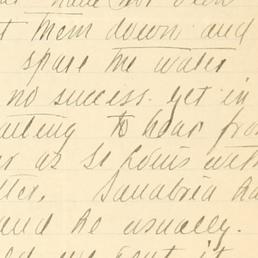 have not been
t them down and
spare the water
no success yet in
aiting to hear fro
r as St Louis with
tter. Sanabria ha
and he usually.
sent it